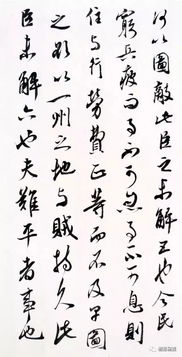 何以圖敵此臣之未解五也今民
窮兵疲而事不可息事不可息則
住与行勞費正等而不及早圖
之欲以一州之地与賊持久此
臣未解六也夫難平者事也